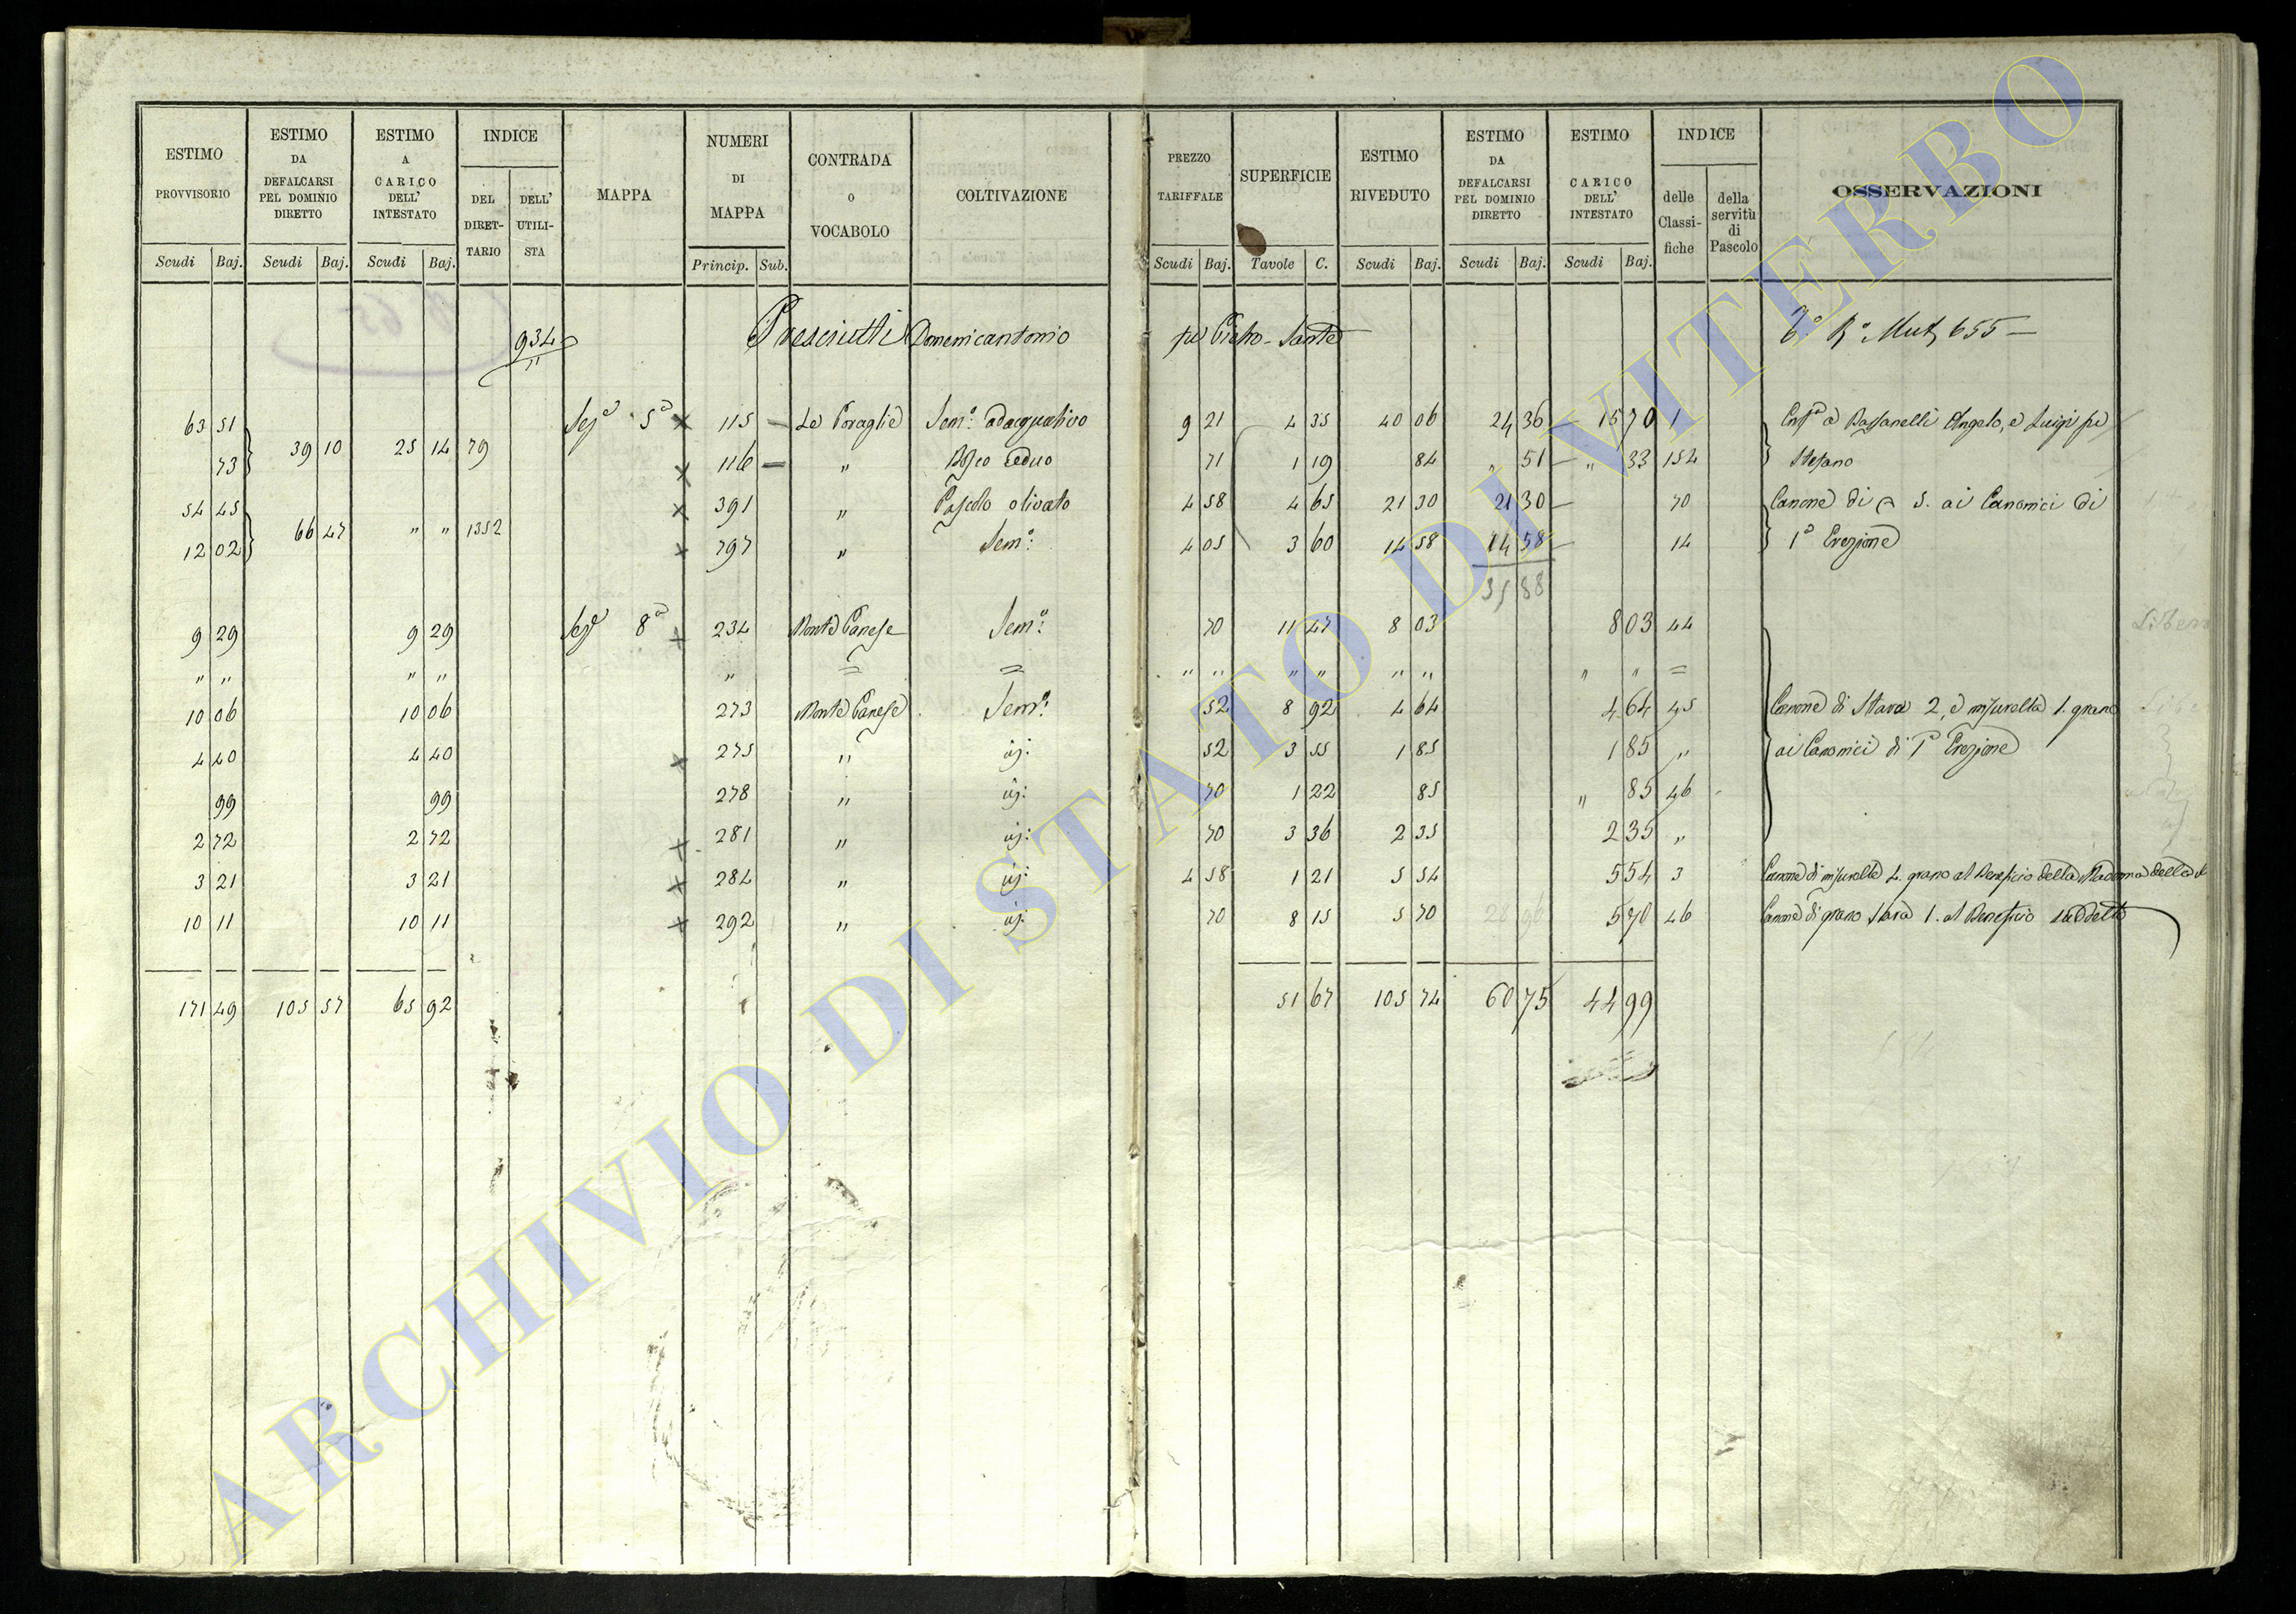 ESTIMO PROVVISORIO | ESTIMO DA DEFALCARSI PEL DOMINIO DIRETTO | ESTIMO A CARICO DELL' INTESTATO | INDICE | MAPPA | NUMERI DI MAPPA | CONTRADA o VOCABOLO | COLTIVAZIONE | PREZZO TARIFFALE | SUPERFICIE | ESTIMO RIVEDUTO | ESTIMO DA DEFALCARSI PEL DOMINIO DIRETTO | ESTIMO A CARICO DELL' INTESTATO | INDICE | OSSERVAZIONI
DEL DIRETTARIO | DELL' UTILISTA | delle Classifiche | della servitù di Pascolo
Scudi | Baj. | Scudi | Baj. | Scudi | Baj. | Princip. | Sub. | Scudi | Baj. | Tavole | C. | Scudi | Baj. | Scudi | Baj. | Scudi | Baj.
934 Presciutti Domenicantonio fu Pietro-Sante Mut. 655
63 51 Sez.e 5a 115 Le Poraglie Sem.o adacquativo 9 21 4 35 40 06 24 36 15 70 1 Enf.a a Bassanelli Angelo, e Luigi fu
39 10 25 14 79
73 116 " Bosco ceduo 71 1 19 84 " 51 " 33 154 Stefano
54 45 391 " Pascolo olivato 4 58 4 65 21 30 21 30 70 Canone di S. ai Canonici di
66 47 " " 1352
12 02 797 " Sem.o 4 05 3 60 14 58 14 58 14 1a Erezione
35 88
9 29 9 29 Sez.e 8a 234 Monte Canese Sem.o 70 11 47 8 03 8 03 44
" " " " " = = " " " " " " " " =
10 06 10 06 273 Monte Canese Sem.o 52 8 92 4 64 4 64 45 Canone di Stara 2, e misurella 1. grano
4 40 4 40 275 " id: 52 3 55 1 85 1 85 " ai Canonici di 1a Erezione
99 99 278 " id: 70 1 22 85 " 85 46
2 72 2 72 281 " id: 70 3 36 2 35 2 35 "
3 21 3 21 284 " id: 4 58 1 21 5 54 5 54 3 Canone di misurelle 4. grano al Beneficio della Madonna della
10 11 10 11 292 " id: 70 8 15 5 70 5 70 46 Canone di grano Stara 1. al Beneficio suddetto
171 49 105 57 65 92 51 67 105 74 60 75 44 99
ARCHIVIO DI STATO DI VITERBO